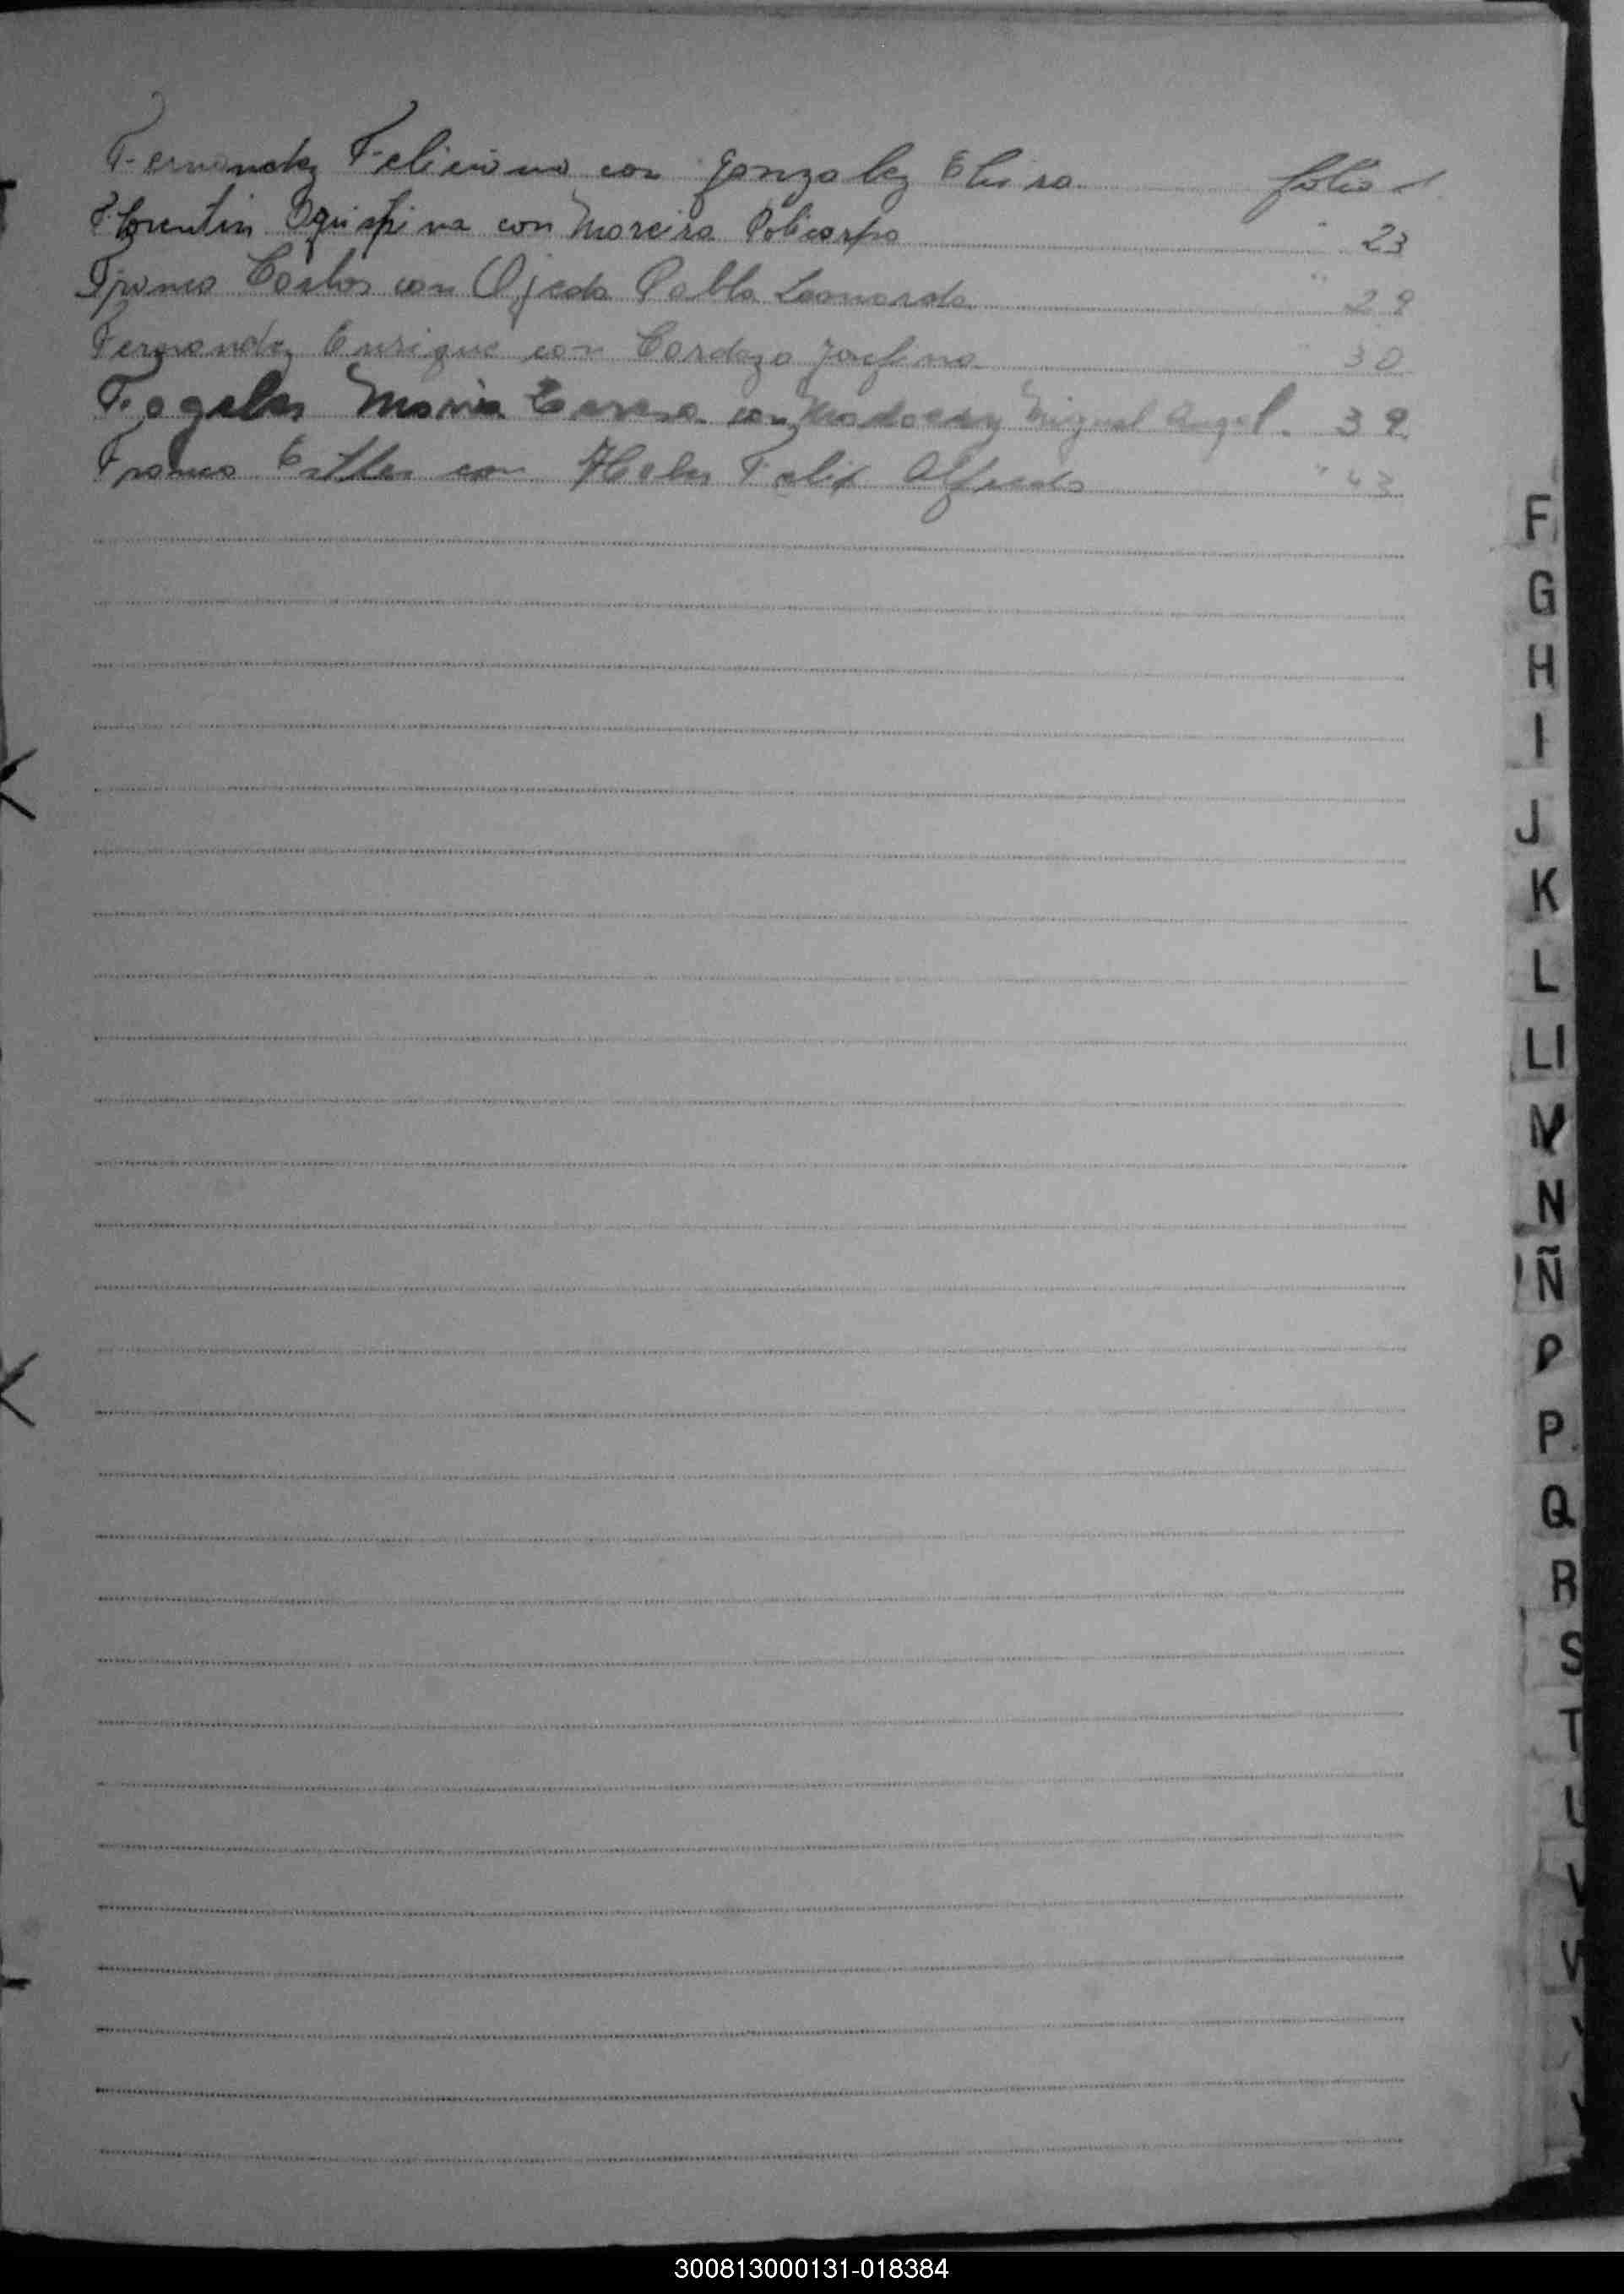 Fernandez Feliciano con Gonzalez Elvira folio 1
Florentin con Moreira Policarpo " 23
Franco Carlos con Ojeda Pabla Leonarda " 29
Fernandez Enrique con Cardozo Josefina " 30
Maria Teresa con Miguel Angel. 39
Franco Esther con Felix Alfredo " 43
F
G
H
I
J
K
L
Ll
M
N
Ñ
P
P
Q
R
S
T
U
V
300813000131-018384